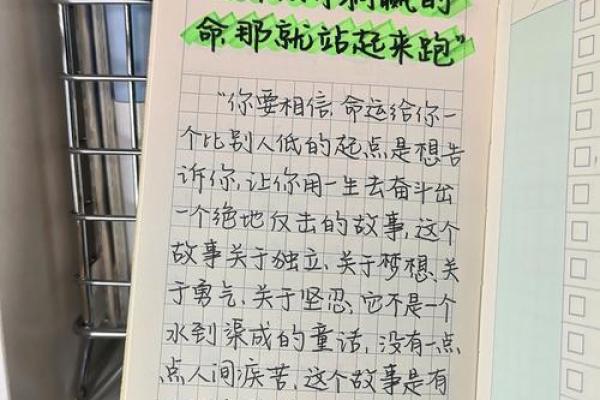 躺赢的
命,那就站起来跑"
"你要相信,命运给你一
个比别人低的起点是想告
诉你,让你用一生去奋斗出
一个绝地反击的故事,这个
故事关于独立、关于梦想、关
于勇气、关于坚忍,它不是一个
水到渠成的童话,没有一点
点人间疾苦,这个故事是有